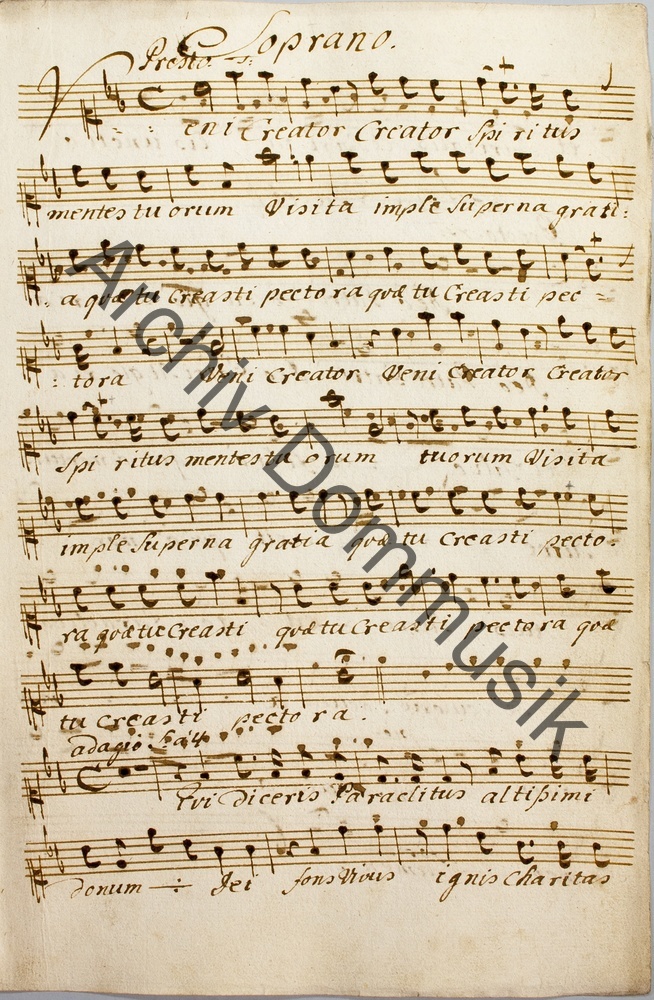 Soprano.
Presto
Veni Creator Creator Spiritus
mentes tuorum Visita imple Superna grati:
a quæ tu Creasti pectora quæ tu Creasti pec =
: tora Veni Creator Veni Creator Creator
Spiritus mentes tu orum tuorum Visita
imple Superna gratia quæ tu Creasti pecto:
ra quæ tu Creasti quæ tu Creasti pectora quæ
tu Creasti pectora.
adagio à 4
Qui diceris Paraclitus altißimi
donum Dei fons Vivus ignis Charitas
Archiv Dommusik